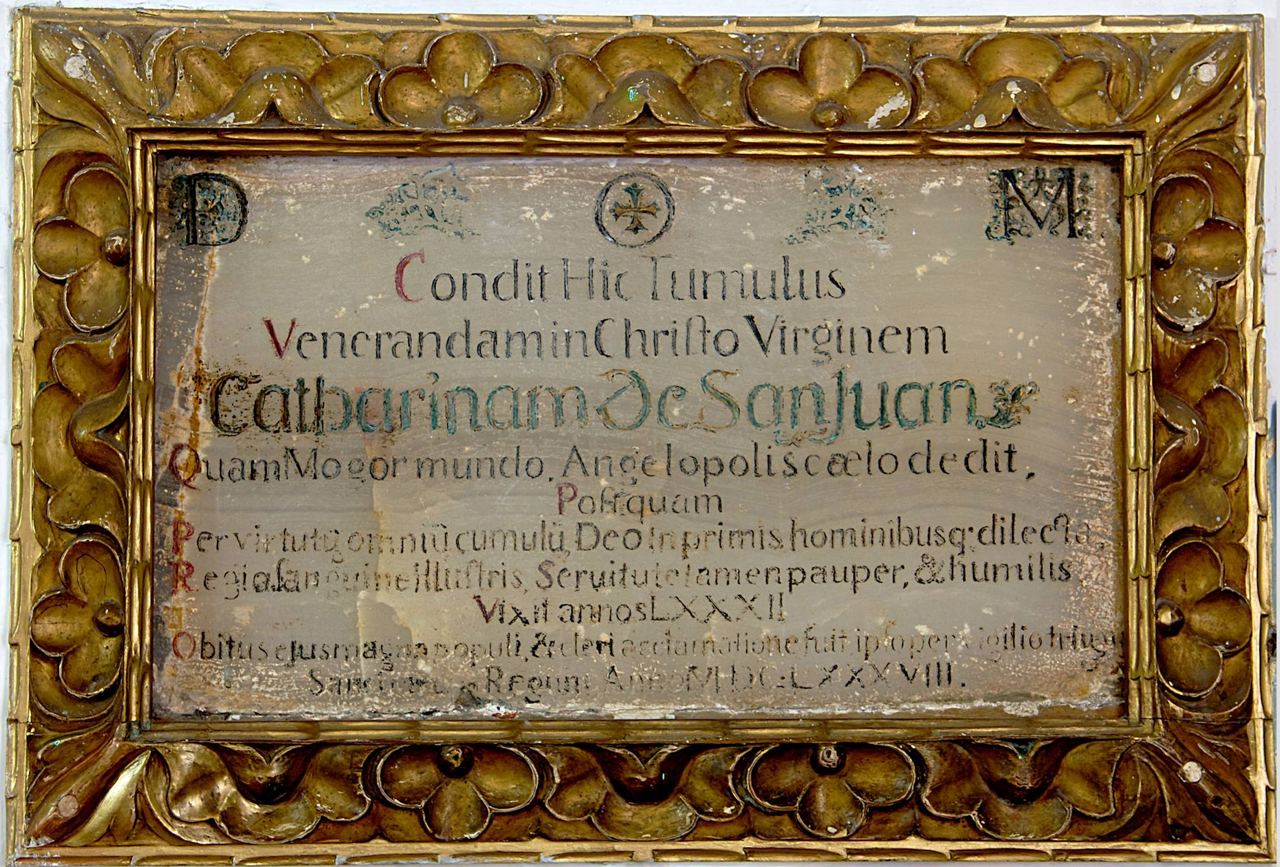 D M
Condit Hic Tumulus
Venerandam in Chriſto Virginem
Catharinam de San Juan.
Quam Mogor mundo, Angelopolis cælo dedit,
Poſtquam
Per virtutũ omniũ cumulũ, Deo in primis hominibusq; dilecta,
Regio ſanguine illuſtris, Seruitute tamen pauper, & humilis
Vixit annos LXXXII
Obitus ejus magna populi, & cleri acclamatione fuit ipſo pervigilio trium
Regum Anno MDCLXXXVIII.